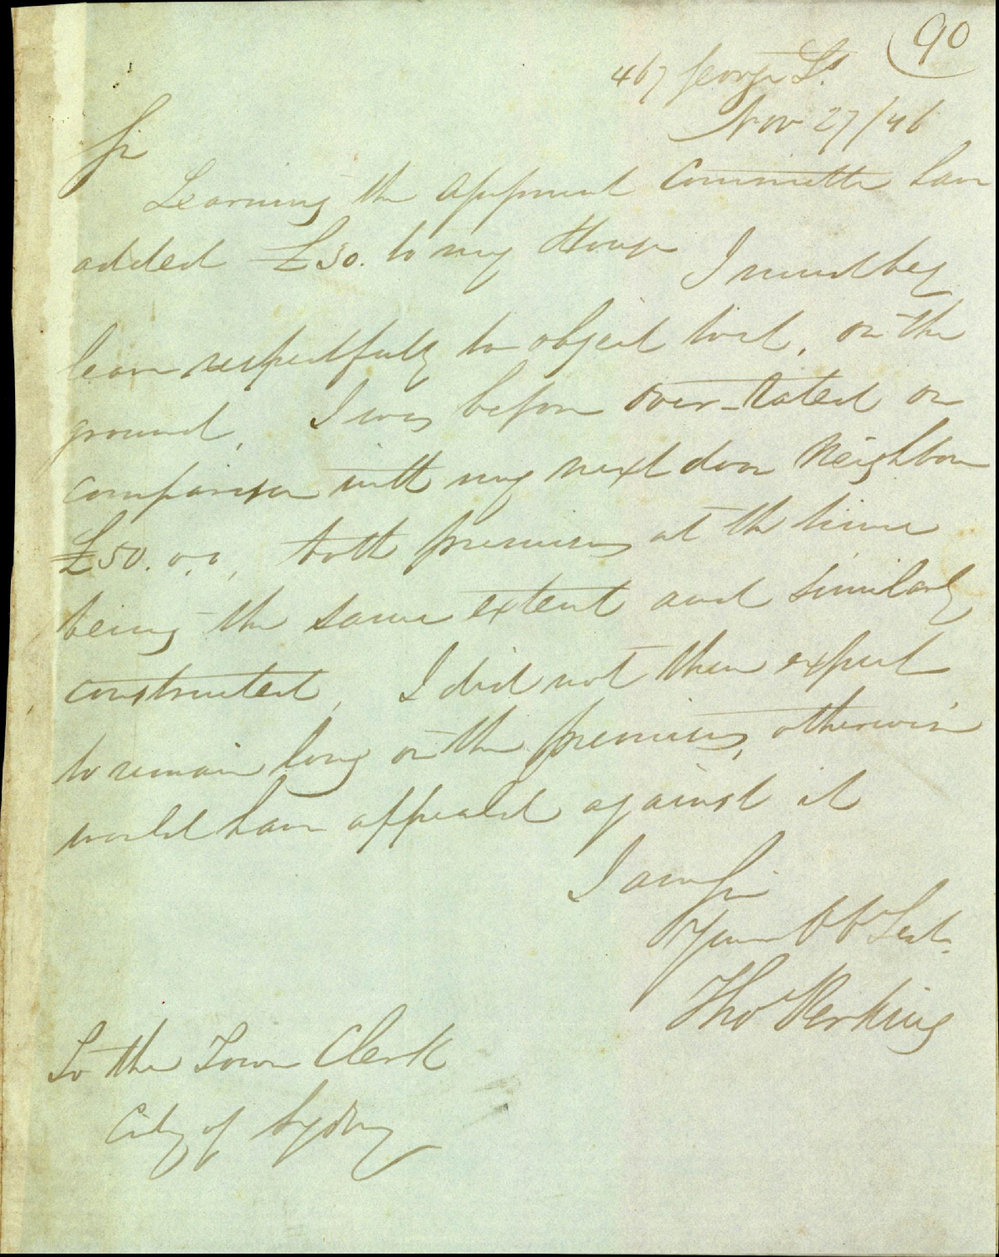 90
467 George St.
Nov 27/46
Sir
Learning the Assessment Committee have
added £50. to my House I must beg
leave respectfully to object to it, on the
ground, I was before over-Rated on
comparison with my next door Neighbour
£50.0.0, both premises at the time
being the same extent and similarly
constructed, I did not then expect
to remain long on the premises, otherwise
would have appealed against it
I am Sir
Your Ob Servt.
Thos Perkins
To the Town Clerk
City of Sydney